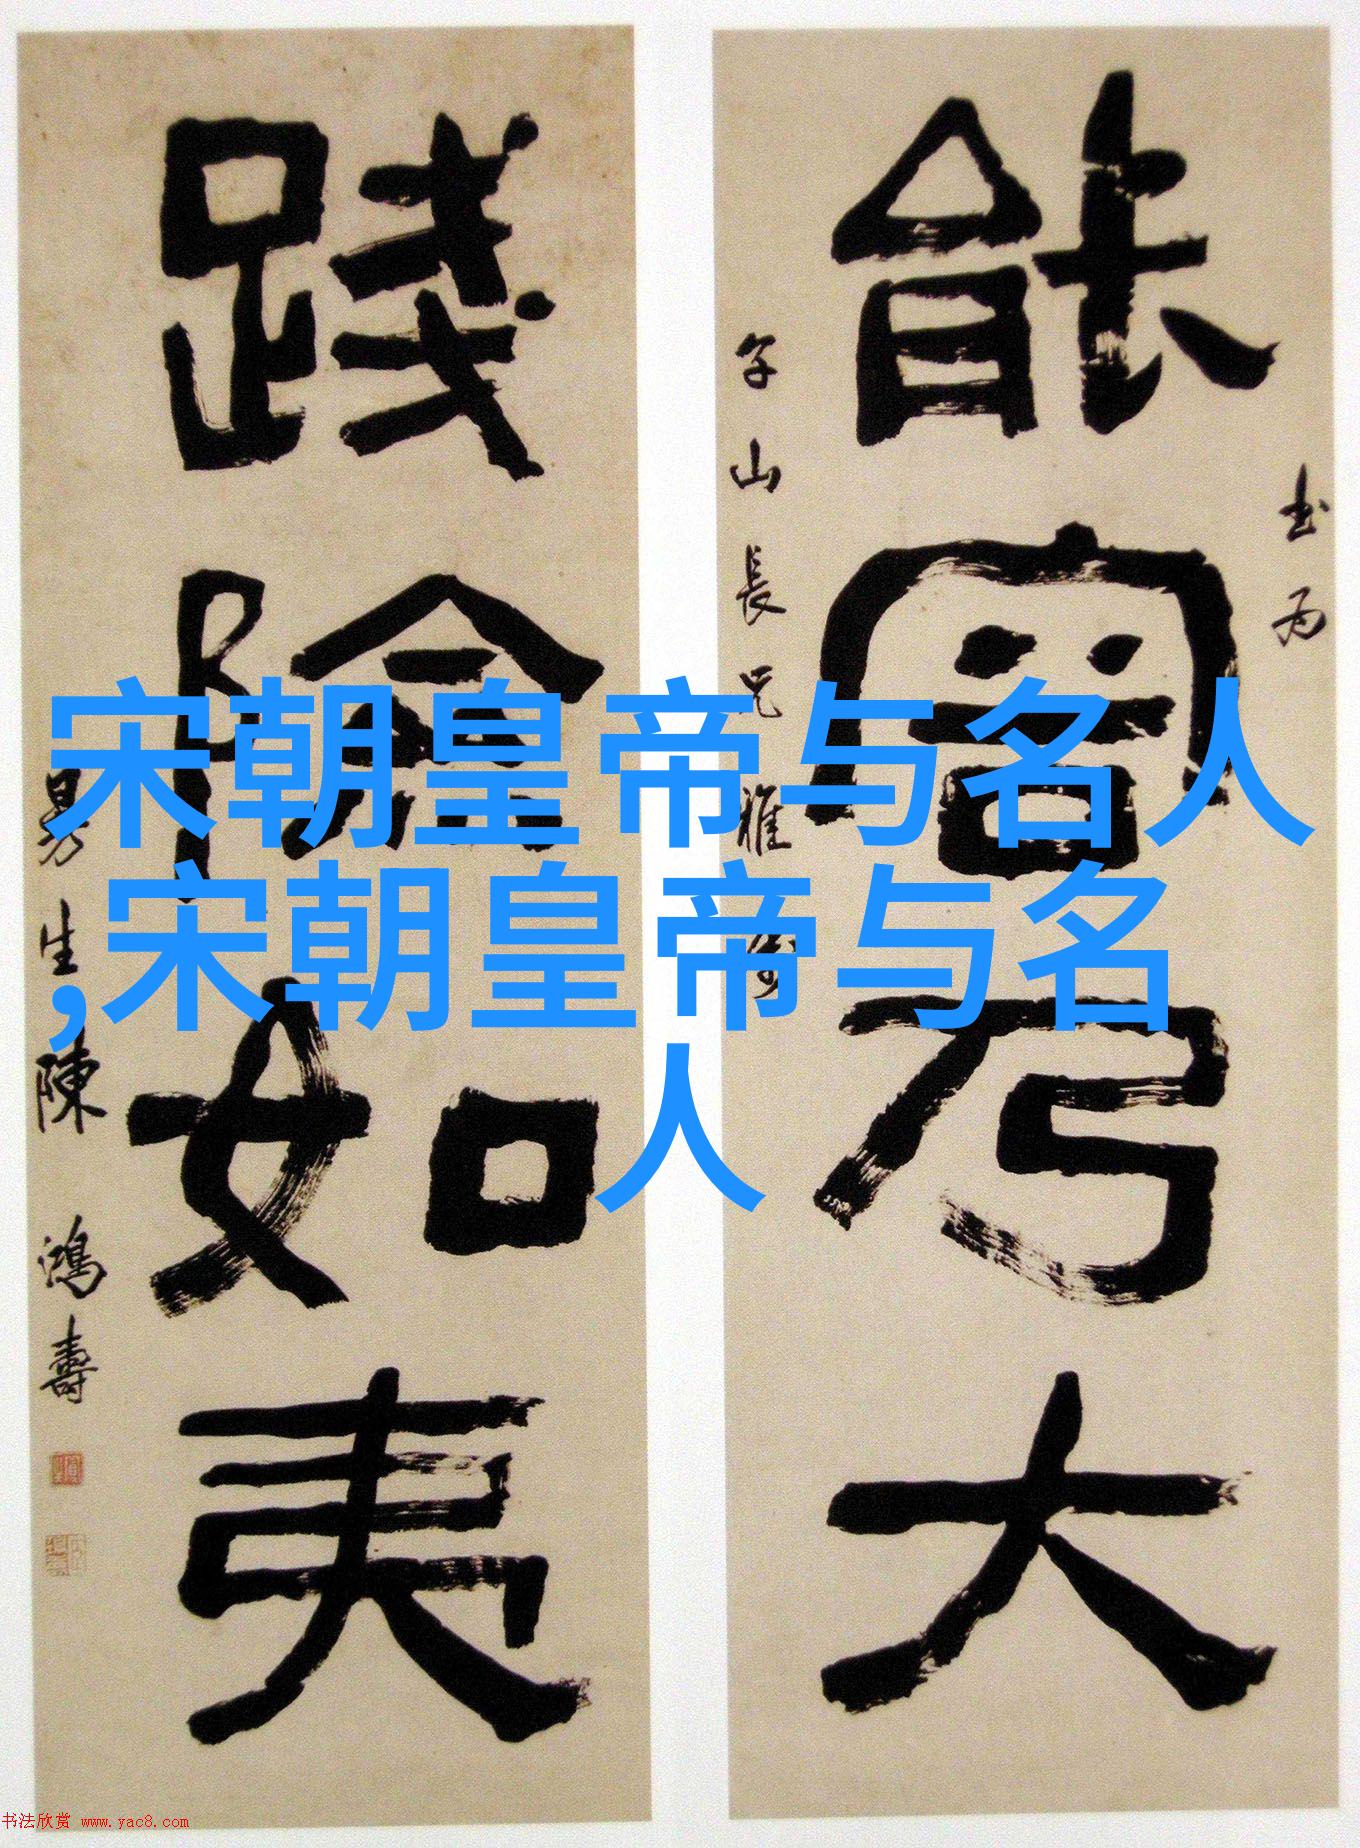 宋朝皇帝与名人
,宋朝皇帝与名
人
书为
能容乃大
子山長兄雅
踐險如夷
曼生陳鴻壽
书法欣赏 www.yac8.com